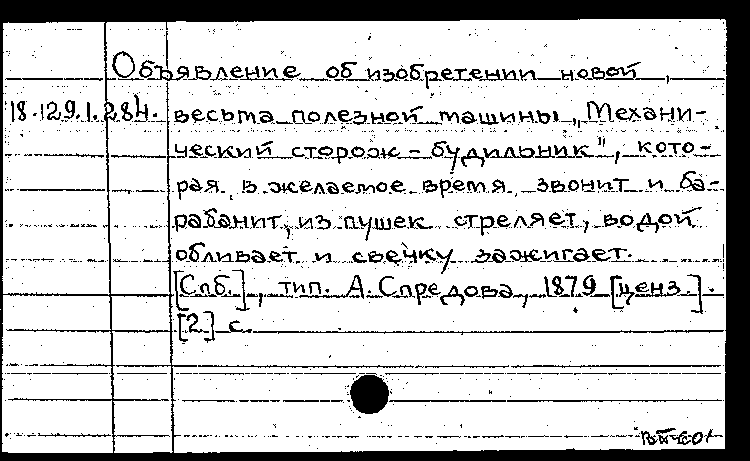 Объявление об изобретении новой,
18.129.1.284. весьма полезной машины „Механи-
ческий сторож-будильник", кото-
рая в желаемое время звонит и ба-
рабанит, из пушек стреляет, водой
обливает и свечку зажигает.
[Спб.], тип. А. Спредова, 1879 [ценз.].
[2] с.